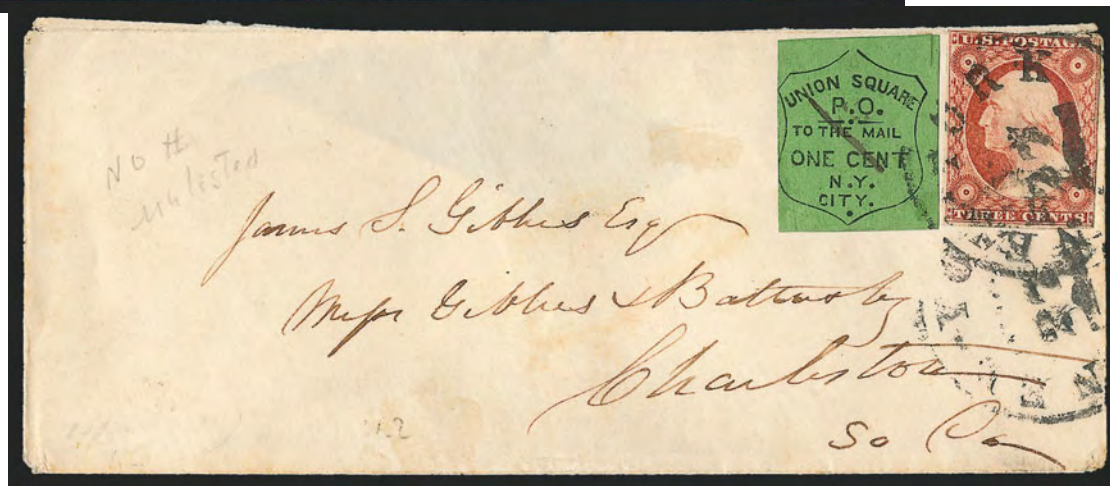 UNION SQUARE
P.O.
TO THE MAIL
ONE CENT
N.Y.
CITY.
U.S. POSTA
THREE CENTS
No #
unlisted
James S. Gibbes Esq
Messr Gibbes & Battersby
Charleston
So Ca